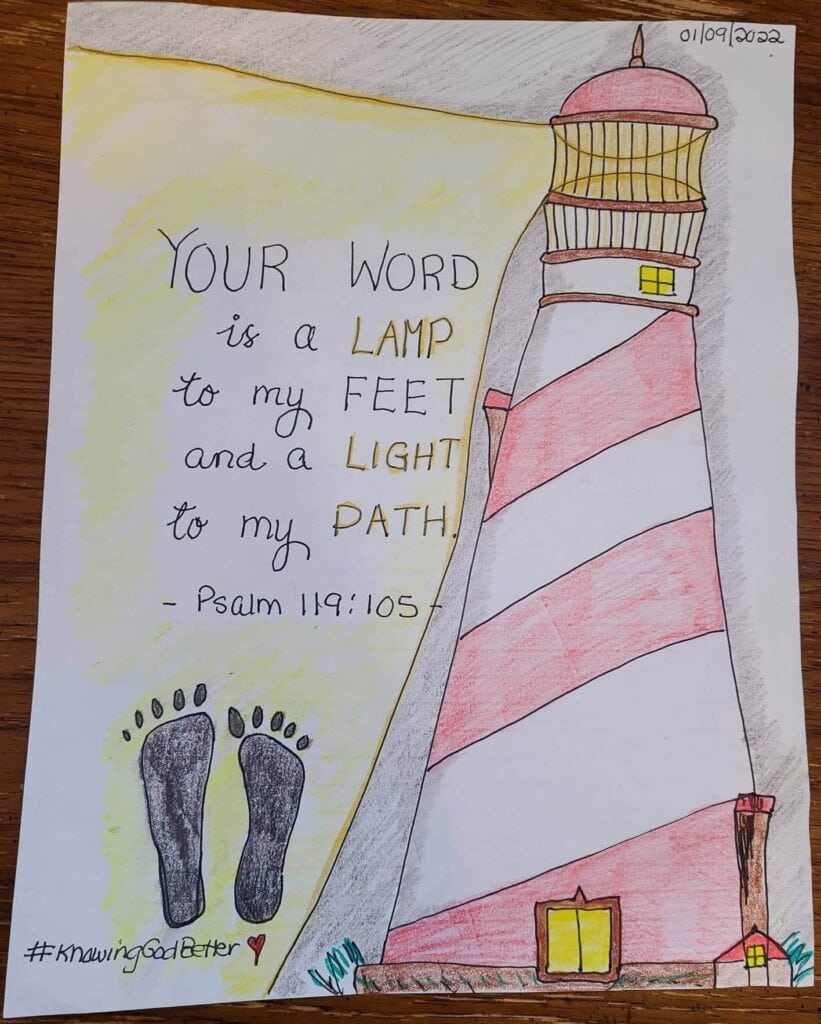 01/09/2022
YOUR WORD
is a LAMP
to my FEET
and a LIGHT
to my PATH.
- Psalm 119:105 -
#KnowingGodBetter